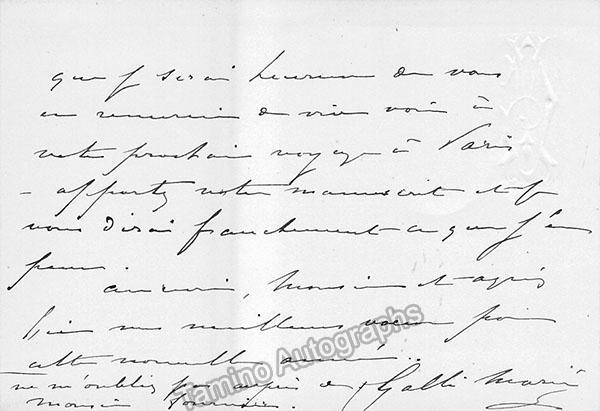 que je serai heureuse de vous
en remercier de vive voix à
votre prochain voyage à Paris
- apportez votre manuscrit et je
vous dirai franchement ce que j'en
pense.
au revoir, Monsieur et agréez
bien mes meilleurs vœux pour
cette nouvelle année..
ne m'oubliez pas auprès de Galli Marié
Monsieur
Tamino Autographs